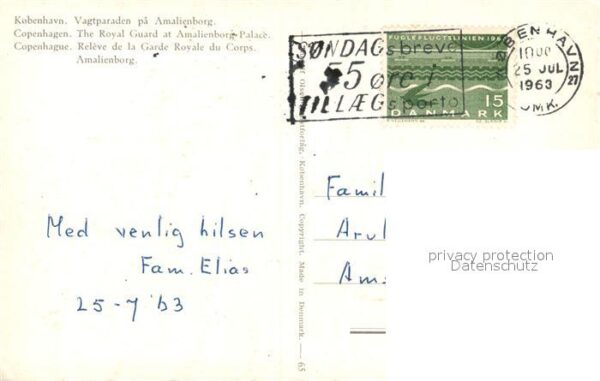 København. Vagtparaden på Amalienborg.
Copenhagen. The Royal Guard at Amalienborg Palace.
Copenhague. Relève de la Garde Royale du Corps.
Amalienborg.
SØNDAGSbreve
55 øre i
TILLÆGSporto
FUGLEFLUGTSLINIEN 1963
15
DANMARK
KØBENHAVN
25 JUL
1963
OMK.
København. Copyright. Made in Denmark. — 65
Med venlig hilsen
Fam. Elias
25-7 '63
Famil
Arul
Ams
privacy protection
Datenschutz